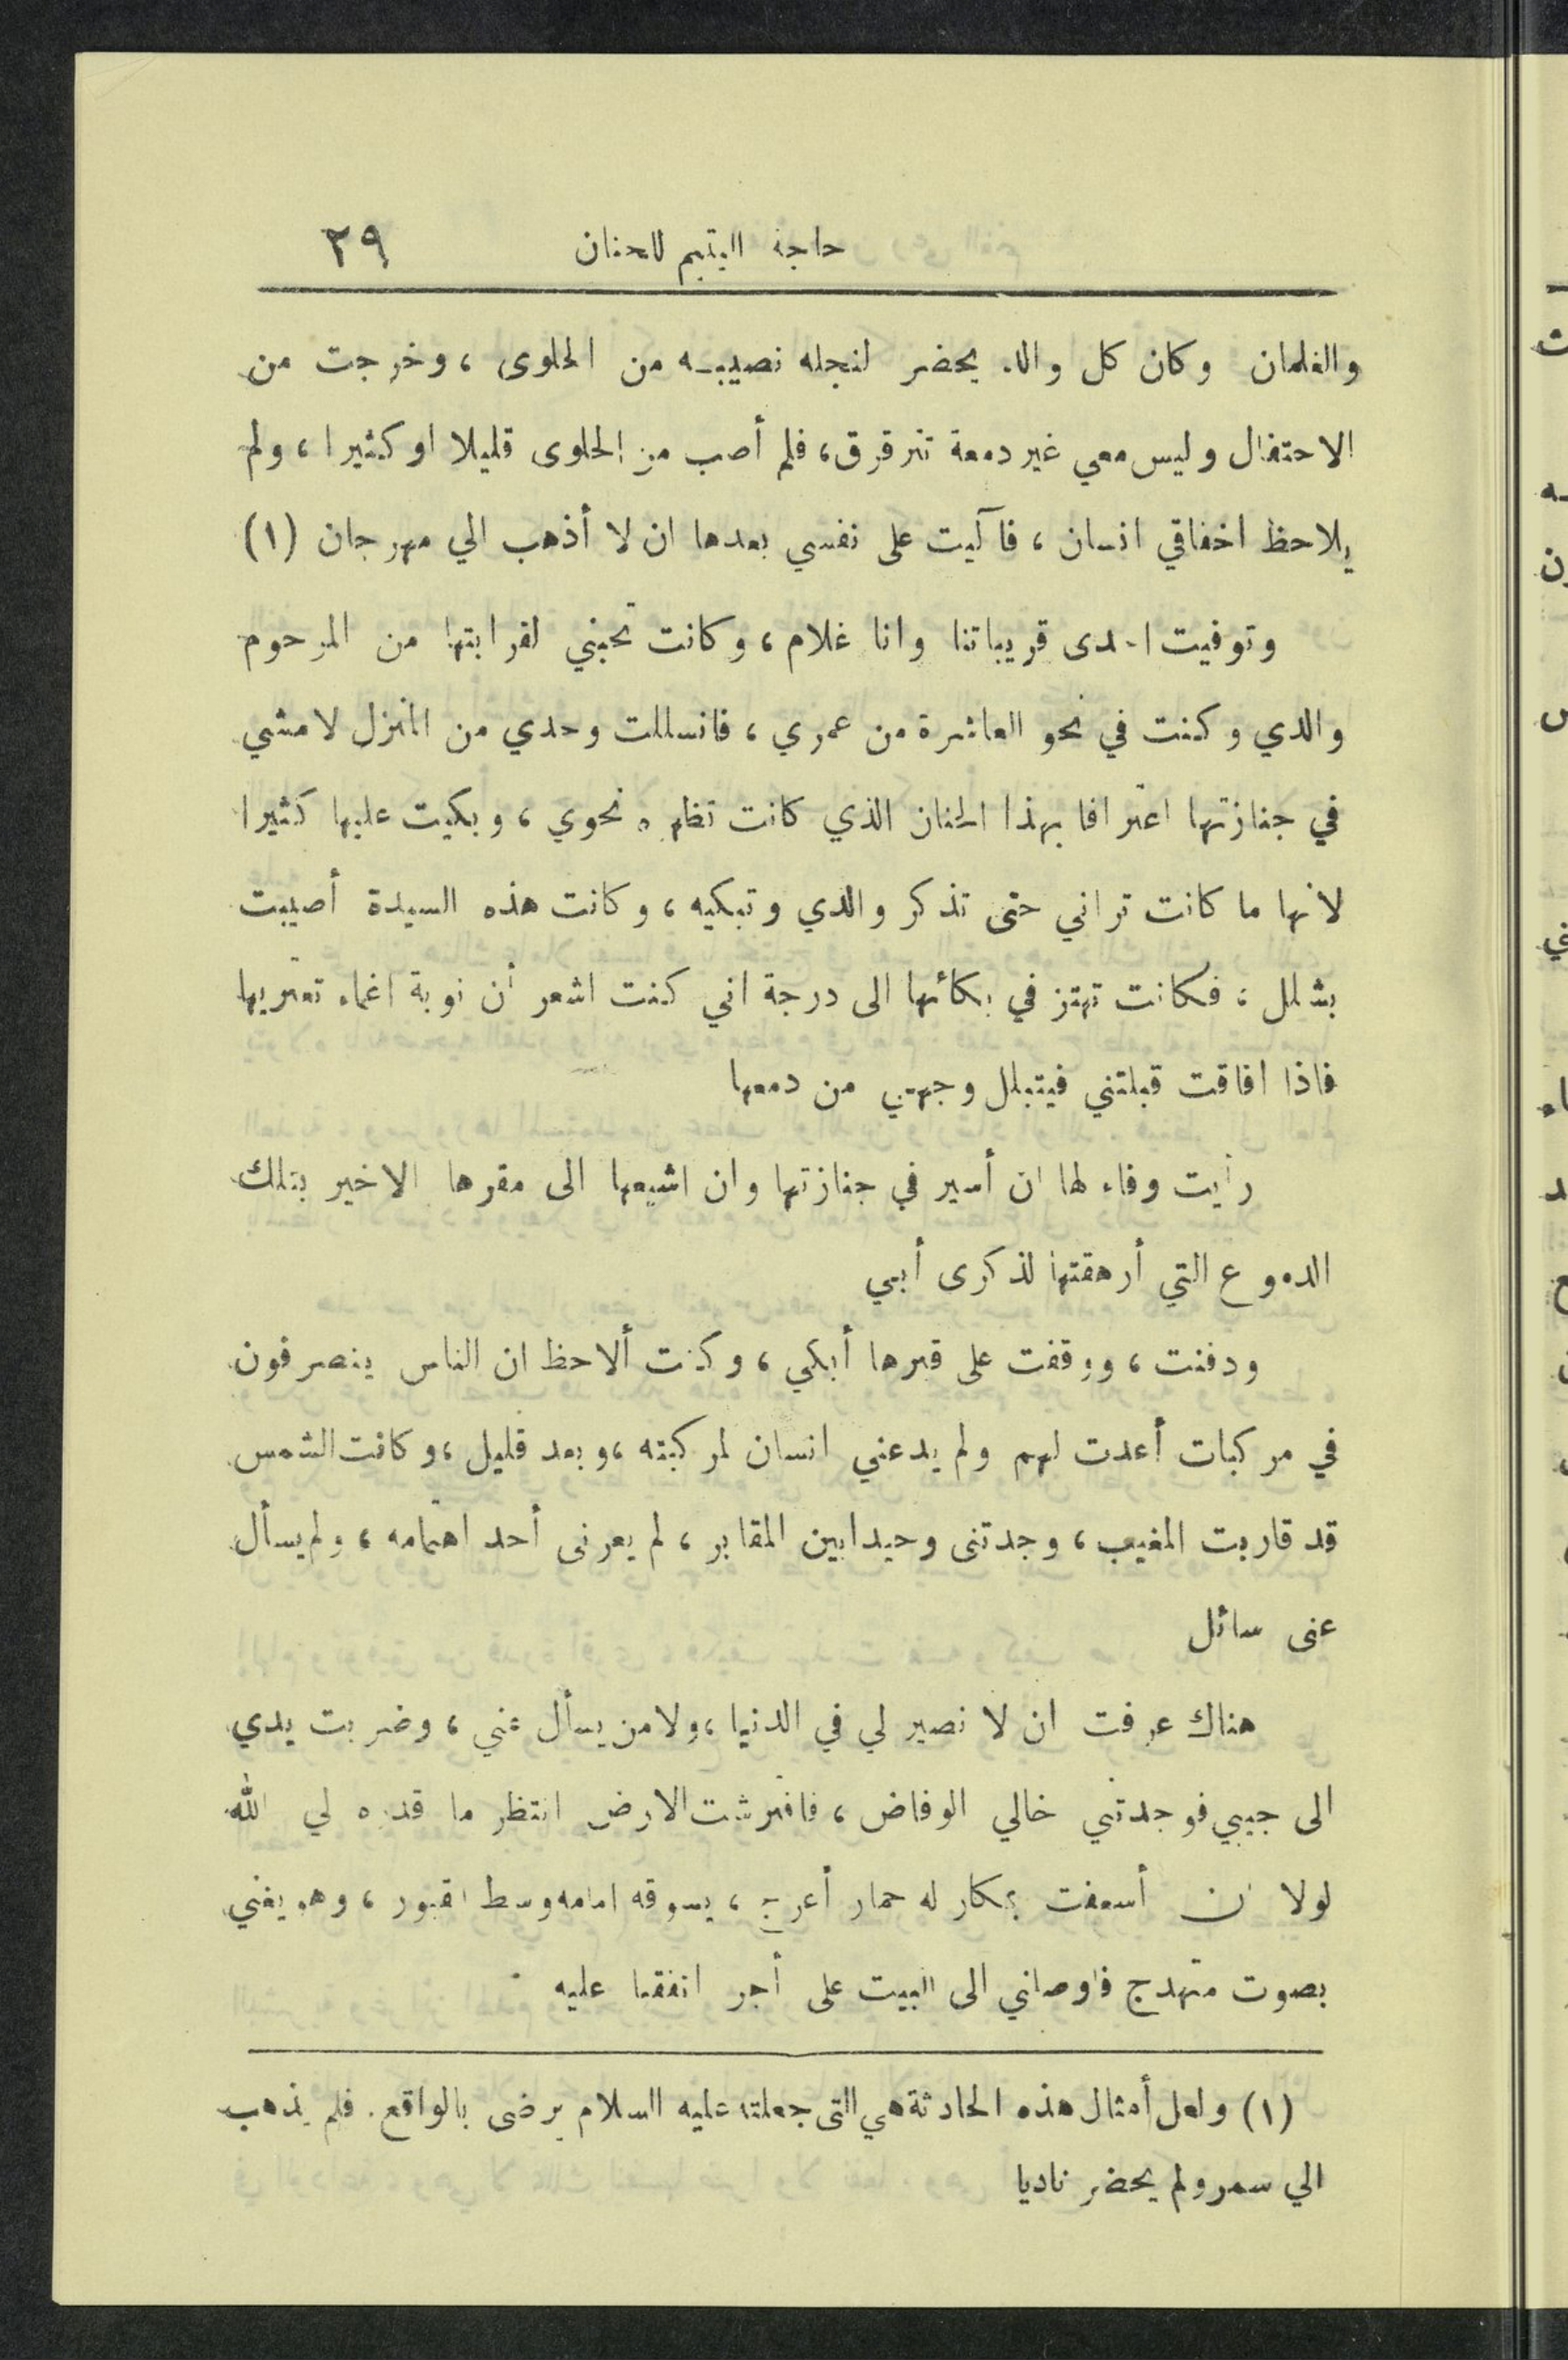 حاجة اليتيم للحنان ٢٩
والغلمان وكان كل والد يحضر لنجله نصيبه من الحلوى ، وخرجت من
الاحتفال وليس معي غير دمعة تترقرق، فلم أصب من الحلوى قليلا او كثيرا ، ولم
يلاحظ اخفاقي انسان ، فآليت على نفسي بعدها ان لا أذهب الي مهرجان (١)
وتوفيت احدى قريباتنا وانا غلام ، وكانت تحبني لقرابتها من المرحوم
والدي وكنت في نحو العاشرة من عمري ، فانسللت وحدي من المنزل لامشي
في جنازتها اعترافا بهذا الحنان الذي كانت تظهره نحوي ، وبكيت عليها كثيرا
لانها ما كانت تراني حتى تذكر والدي وتبكيه ، وكانت هذه السيدة أصيبت
بشلل ، فكانت تهتز في بكائها الى درجة اني كنت اشعر أن نوبة اغماء تعتريها
فاذا افاقت قبلتني فيتبلل وجهي من دمعها
رأيت وفاء لها ان أسير في جنازتها وان اشيعها الى مقرها الاخير بتلك
الدموع التي أرهقتها لذكرى أبي
ودفنت ، ووقفت على قبرها أبكي ، وكنت ألاحظ ان الناس ينصرفون
في مركبات أعدت لهم ولم يدعني انسان لمركبته ، وبعد قليل ، وكانت الشمس
قد قاربت المغيب ، وجدتنى وحيدا بين المقابر ، لم يعرنى أحد اهتمامه ، ولم يسأل
عنى سائل
هناك عرفت ان لا نصير لي في الدنيا ، ولا من يسأل عني ، وضربت يدي
الى جيبي فوجدتني خالي الوفاض ، فافترشت الارض انتظر ما قدره لي الله
لولا ان أسعفت بمكار له حمار أعرج ، يسوقه امامه وسط القبور ، وهو يغني
بصوت متهدج فاوصلني الى البيت على أجر اتفقنا عليه .
(١) ولعل أمثال هذه الحادثة هي التى جعلته عليه السلام يرضى بالواقع . فلم يذهب
الي سمر ولم يحضر ناديا